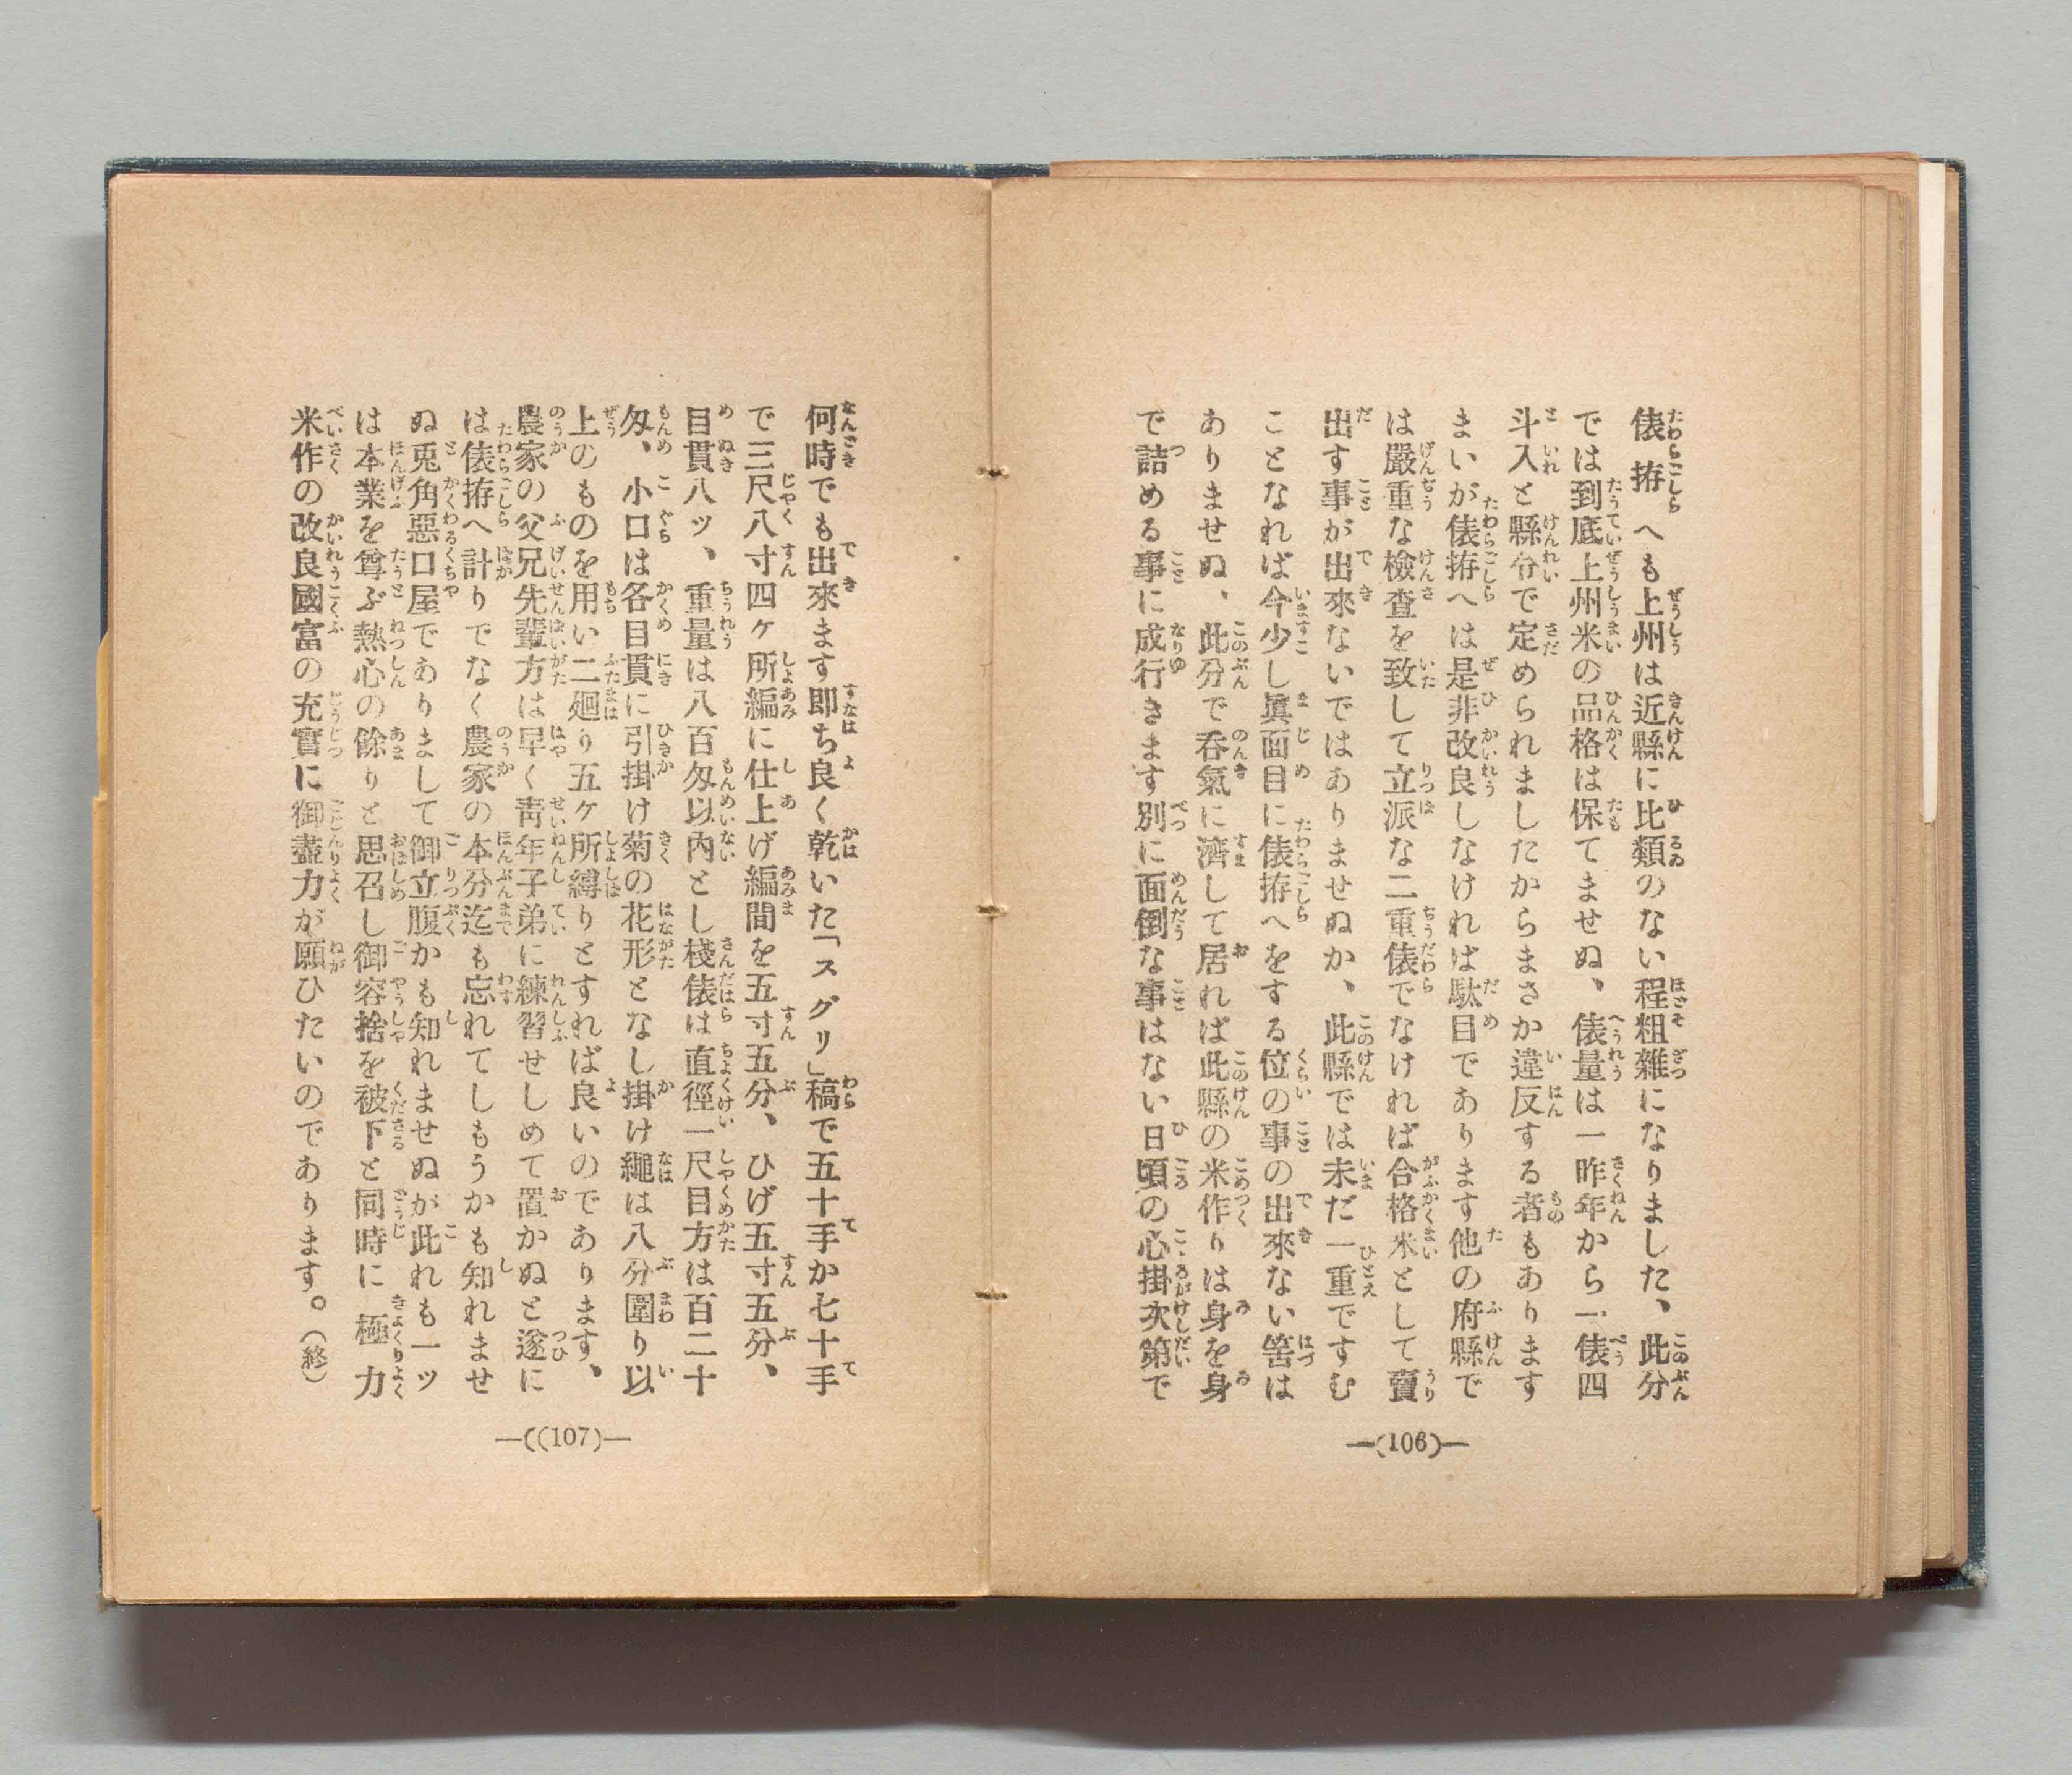 俵拵へも上州は近縣に比類のない程粗雜になりました、此分
では到底上州米の品格は保てませぬ、俵量は一昨年から一俵四
斗入と縣令で定められましたからまさか違反する者もあります
まいが俵拵へは是非改良しなければ駄目であります他の府縣で
は嚴重な檢査を致して立派な二重俵でなければ合格米として賣
出す事が出來ないではありませぬか、此縣では未だ一重ですむ
ことなれば今少し眞面目に俵拵へをする位の事の出來ない筈は
ありませぬ、此分で呑氣に濟して居れば此縣の米作りは身を身
で詰める事に成行きます別に面倒な事はない日頃の心掛次第で
—(106)—
何時でも出來ます即ち良く乾いた「スグリ」稿で五十手か七十手
で三尺八寸四ヶ所編に仕上げ編間を五寸五分、ひげ五寸五分、
目貫八ッ、重量は八百匁以內とし棧俵は直徑一尺目方は百二十
匁、小口は各目貫に引掛け菊の花形となし掛け繩は八分圍り以
上のものを用い二廻り五ヶ所縛りとすれば良いのであります、
農家の父兄先輩方は早く靑年子弟に練習せしめて置かぬと遂に
は俵拵へ計りでなく農家の本分迄も忘れてしもうかも知れませ
ぬ兎角惡口屋でありまして御立腹かも知れませぬが此れも一ッ
は本業を尊ぶ熱心の餘りと思召し御容捨を被下と同時に極力
米作の改良國富の充實に御盡力が願ひたいのであります。（終）
—((107)—